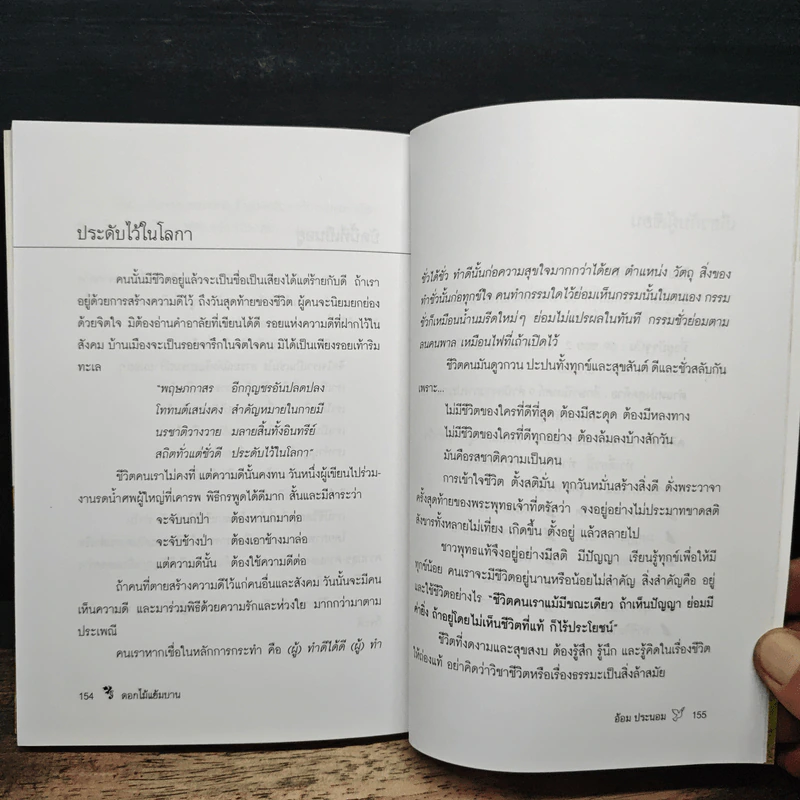 ประดับไว้ในโลกา
คนนั้นมีชีวิตอยู่แล้วจะเป็นชื่อเป็นเสียงได้แต่ร้ายกับดี ถ้าเรา
อยู่ด้วยการสร้างความดีไว้ ถึงวันสุดท้ายของชีวิต ผู้คนจะนิยมยกย่อง
ด้วยจิตใจ มิต้องอ่านคำอาลัยที่เขียนได้ดี รอยแห่งความดีที่ฝากไว้ใน
สังคม บ้านเมืองจะเป็นรอยจารึกในจิตใจคน มิได้เป็นเพียงรอยเท้าริม
ทะเล
"พฤษภกาสร อีกกุญชรอันปลดปลง
โททนต์เสน่งคง สำคัญหมายในกายมี
นรชาติวางวาย มลายสิ้นทั้งอินทรีย์
สถิตทั่วแต่ชั่วดี ประดับไว้ในโลกา"
ชีวิตคนเราไม่คงที่ แต่ความดีนั้นคงทน วันหนึ่งผู้เขียนไปร่วม-
งานรดน้ำศพผู้ใหญ่ที่เคารพ พิธีกรพูดได้ดีมาก สั้นและมีสาระว่า
จะจับนกป่า ต้องหานกมาต่อ
จะจับช้างป่า ต้องเอาช้างมาล่อ
แต่ความดีนั้น ต้องใช้ความดีต่อ
ถ้าคนที่ตายสร้างความดีไว้แก่คนอื่นและสังคม วันนั้นจะมีคน
เห็นความดี และมาร่วมพิธีด้วยความรักและห่วงใย มากกว่ามาตาม
ประเพณี
คนเราหากเชื่อในหลักการกระทำ คือ (ผู้) ทำดีได้ดี (ผู้) ทำ
154 ดอกไม้แย้มบาน
ชั่วได้ชั่ว ทำดีนั้นก่อความสุขใจมากกว่าได้ยศ ตำแหน่ง วัตถุ สิ่งของ
ทำชั่วนั้นก่อทุกข์ใจ คนทำกรรมใดไว้ย่อมเห็นกรรมนั้นในตนเอง กรรม
ชั่วก็เหมือนน้ำนมรีดใหม่ๆ ย่อมไม่แปรผลในทันที กรรมชั่วย่อมตาม
ลนคนพาล เหมือนไฟที่เถ้าเปิดไว้
ชีวิตคนมันดูวกวน ปะปนทั้งทุกข์และสุขสันต์ ดีและชั่วสลับกัน
เพราะ...
ไม่มีชีวิตของใครที่ดีที่สุด ต้องมีสะดุด ต้องมีหลงทาง
ไม่มีชีวิตของใครที่ดีทุกอย่าง ต้องล้มลงบ้างสักวัน
มันคือรสชาติความเป็นคน
การเข้าใจชีวิต ตั้งสติมั่น ทุกวันหมั่นสร้างสิ่งดี ดั่งพระวาจา
ครั้งสุดท้ายของพระพุทธเจ้าที่ตรัสว่า จงอยู่อย่างไม่ประมาทขาดสติ
สังขารทั้งหลายไม่เที่ยง เกิดขึ้น ตั้งอยู่ แล้วสลายไป
ชาวพุทธแท้จึงอยู่อย่างมีสติ มีปัญญา เรียนรู้ทุกข์เพื่อให้มี
ทุกข์น้อย คนเราจะมีชีวิตอยู่นานหรือน้อยไม่สำคัญ สิ่งสำคัญคือ อยู่
และใช้ชีวิตอย่างไร "ชีวิตคนเราแม้มีขณะเดียว ถ้าเห็นปัญญา ย่อมมี
ค่ายิ่ง ถ้าอยู่โดยไม่เห็นชีวิตที่แท้ ก็ไร้ประโยชน์"
ชีวิตที่งดงามและสุขสงบ ต้องรู้สึก รู้นึก และรู้คิดในเรื่องชีวิต
ให้ถ่องแท้ อย่าคิดว่าวิชาชีวิตหรือเรื่องธรรมะเป็นสิ่งล้าสมัย
อ้อม ประนอม 155